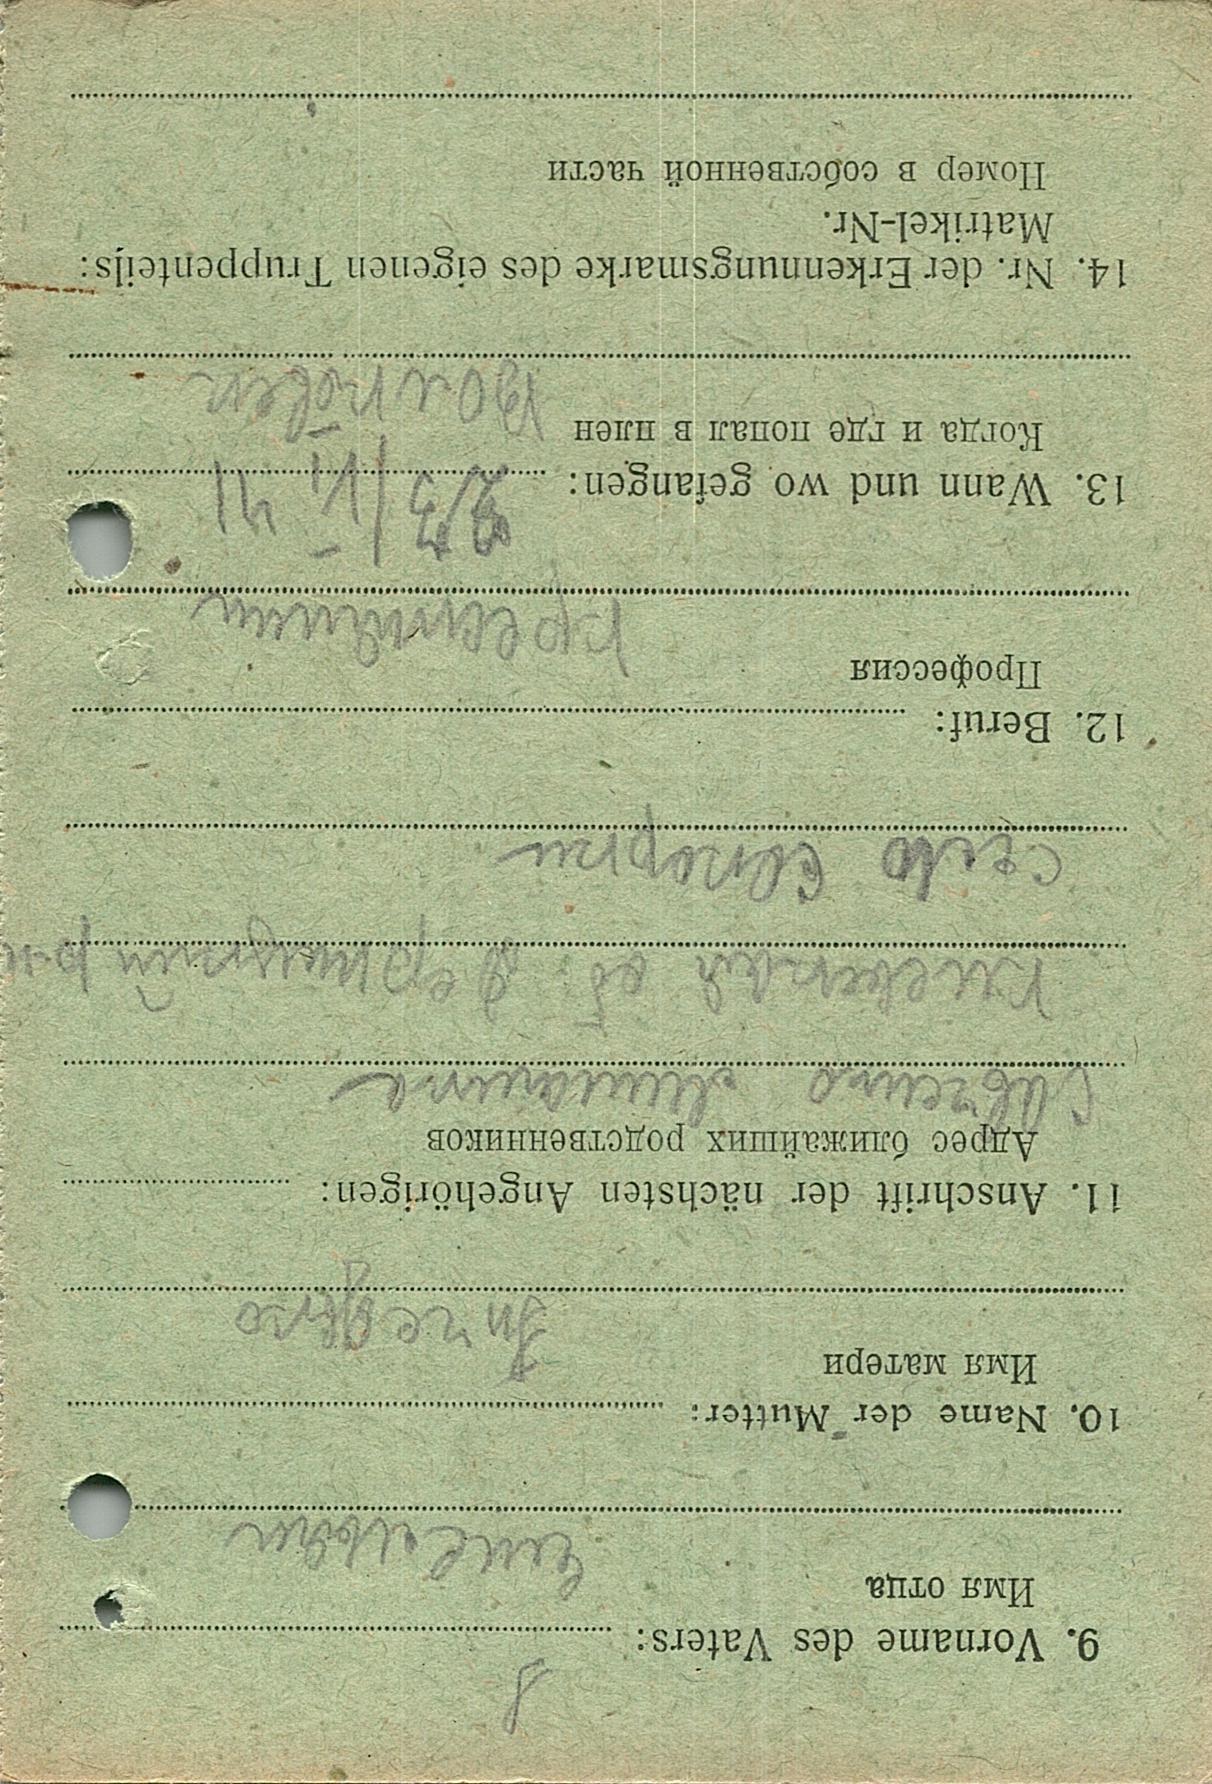 9. Vorname des Vaters:
Имя отца
10. Name der Mutter:
Имя матери
11. Anschrift der nächsten Angehörigen:
Адрес ближайших родственников
Савченко
Киевская об
село
12. Beruf:
Профессия
крестьянин
13. Wann und wo gefangen:
23/VI 41
Когда и где попал в плен
14. Nr. der Erkennungsmarke des eigenen Truppenteils:
Matrikel-Nr.
Номер в собственной части